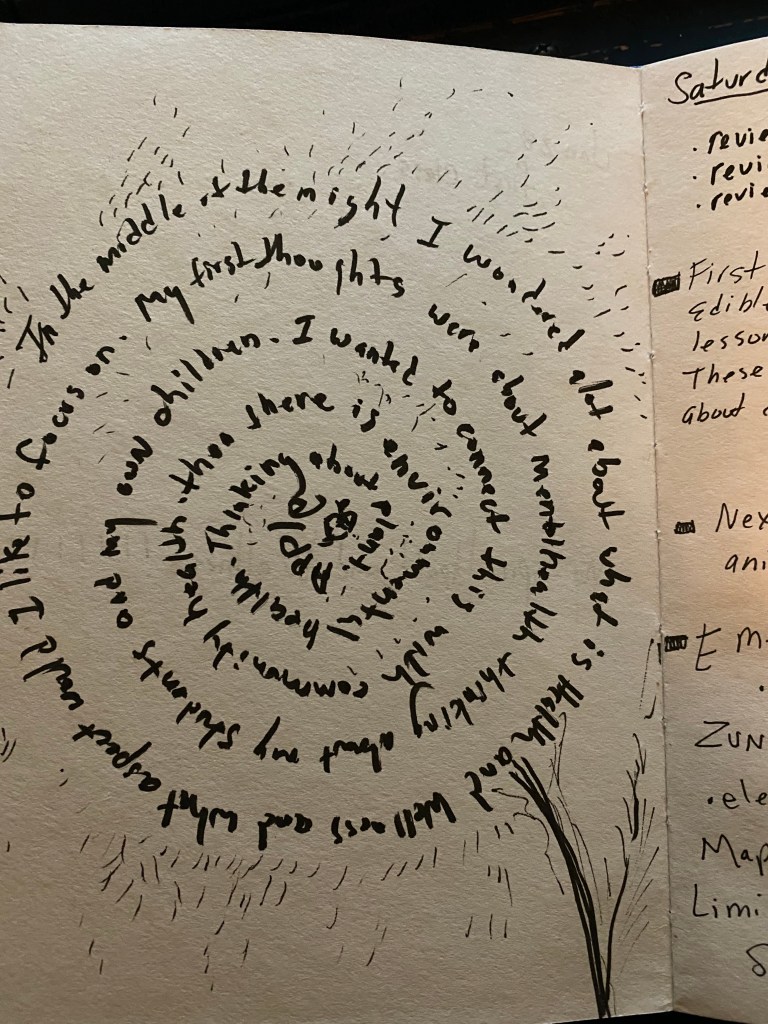 In the middle of the night I wondered alot about what is Health and Wellness and what aspect would I like to focus on. My first thoughts were about mentalhealth thinking about my students and my own children. I wanted to connect this with community health. then there is environmental health. Thinking about plant. apple
Saturd
. revie
. revi
. revie
First
Edible
lesson
These
about
Nex
ani
Em
ZUN
. ele
Map
Limi